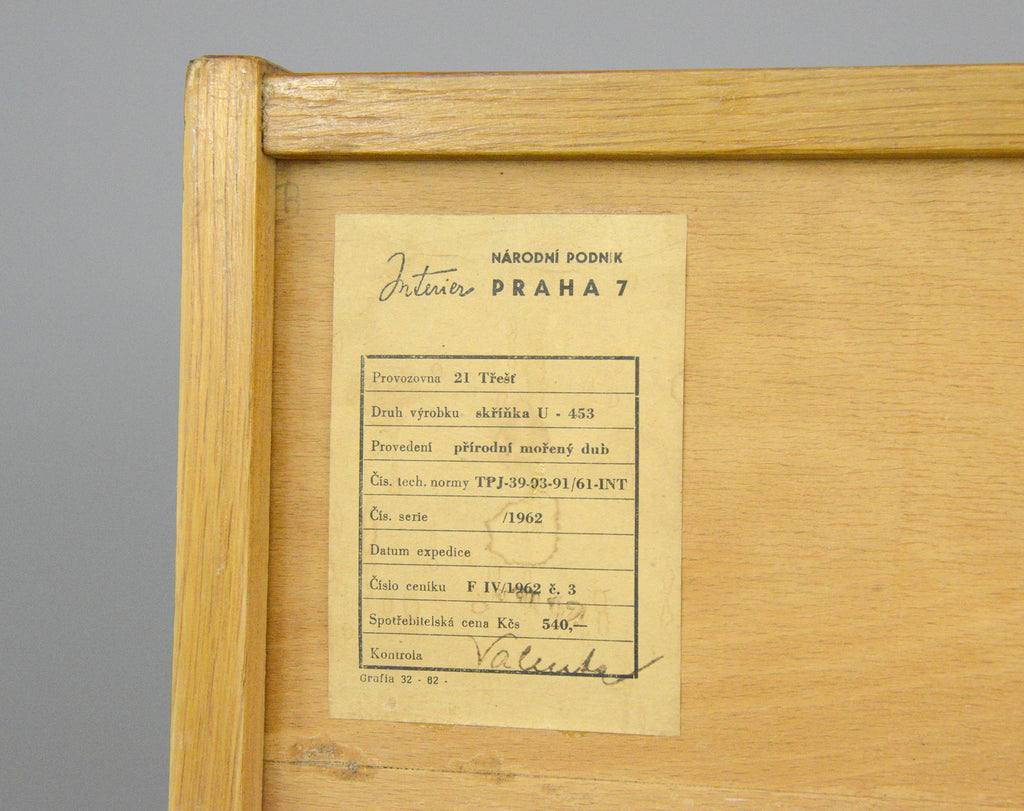 Interier NÁRODNÍ PODNIK
PRAHA 7
Provozovna 21 Třešť
Druh výrobku skříňka U - 453
Provedení přírodní mořený dub
Čís. tech. normy TPJ-39-93-91/61-INT
Čís. serie /1962
Datum expedice
Číslo ceníku F IV/1962 č. 3
Spotřebitelská cena Kčs 540,—
Kontrola Valenta
Grafia 32 - 62 -